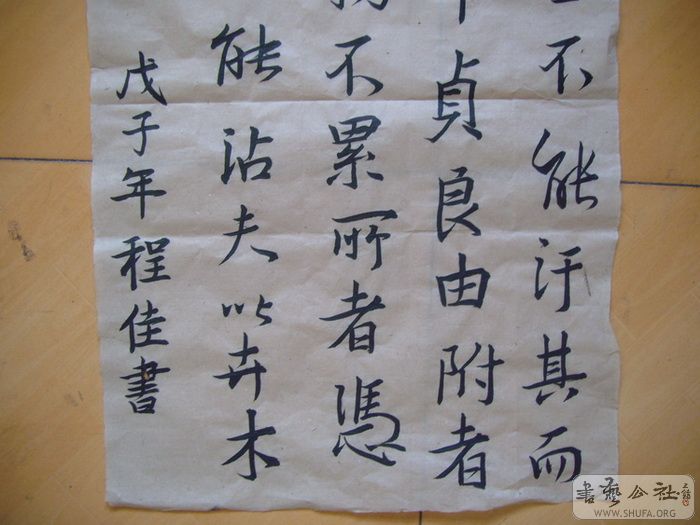 不能汙其而
貞良由附者
不累所者憑
能沾夫以卉木
戊子年程佳書
書藝公社
WWW.SHUFA.ORG